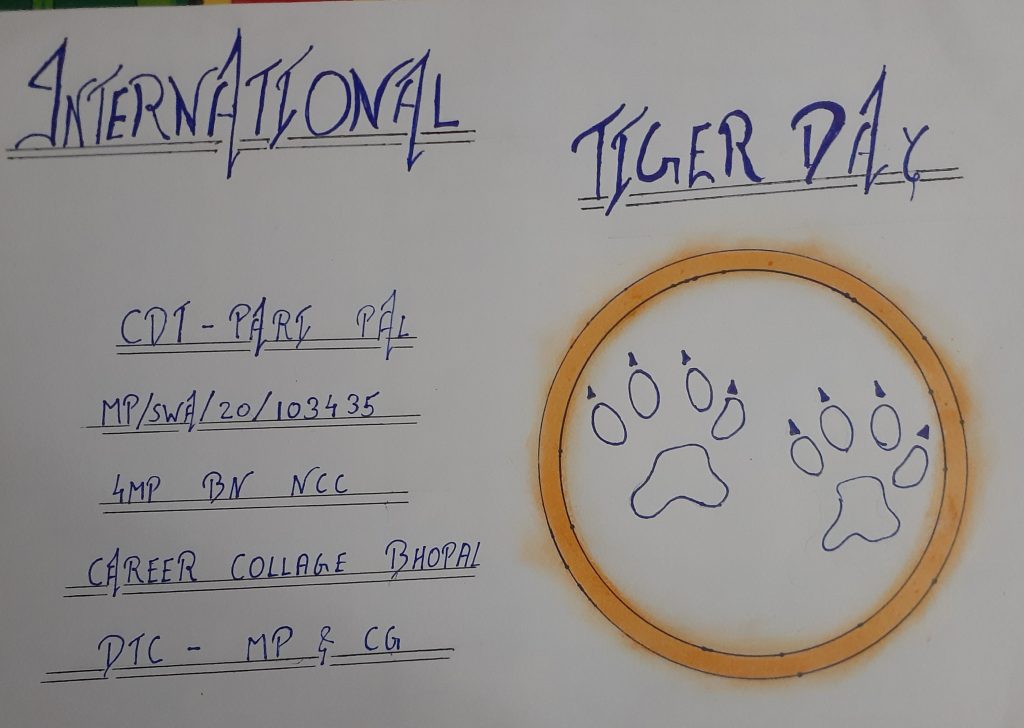 INTERNATIONAL
TIGER DAY
CDT - PARI PAL
MP/SWA/20/103435
4MP BN NCC
CAREER COLLAGE BHOPAL
DTC - MP & CG